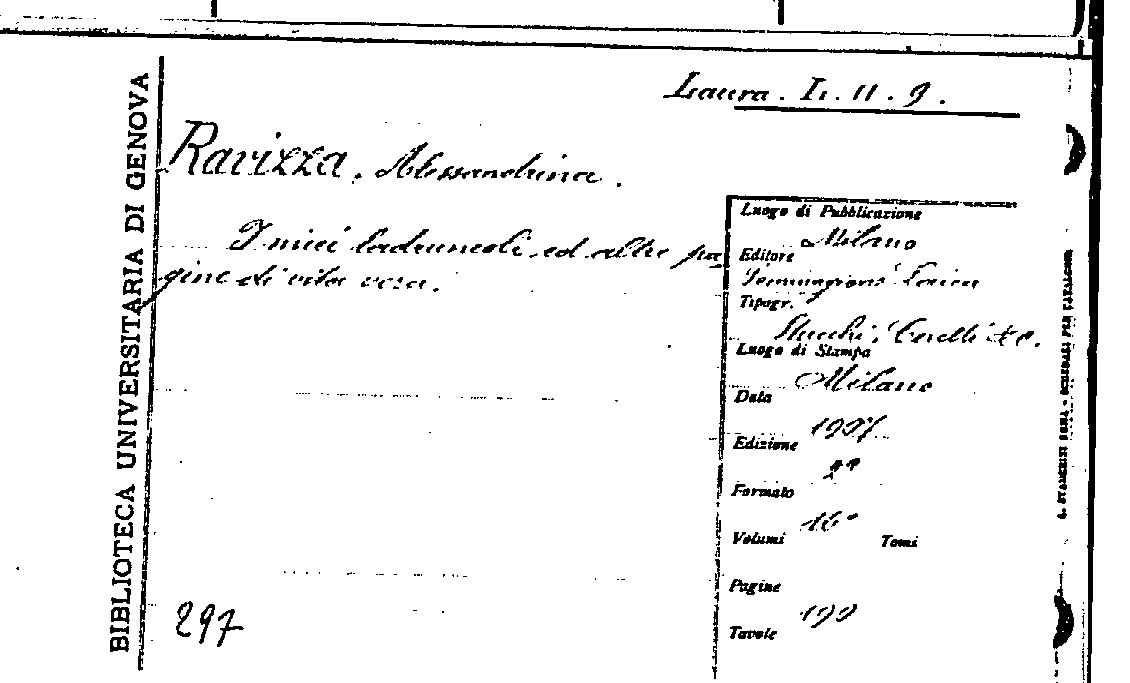 BIBLIOTECA UNIVERSITARIA DI GENOVA
Laura. L. 11. 9.
Ravizza, Alessandrina.
I miei ladruncoli ed altre pa
gine di vita vera.
Luogo di Pubblicazione
Milano
Editore
Tipogr.
Stucchi, Ceretti & C.
Luogo di Stampa
Milano
Data
Edizione 1907
2ª
Formato
Volumi 16° Tomi
Pagine
Tavole 199
297